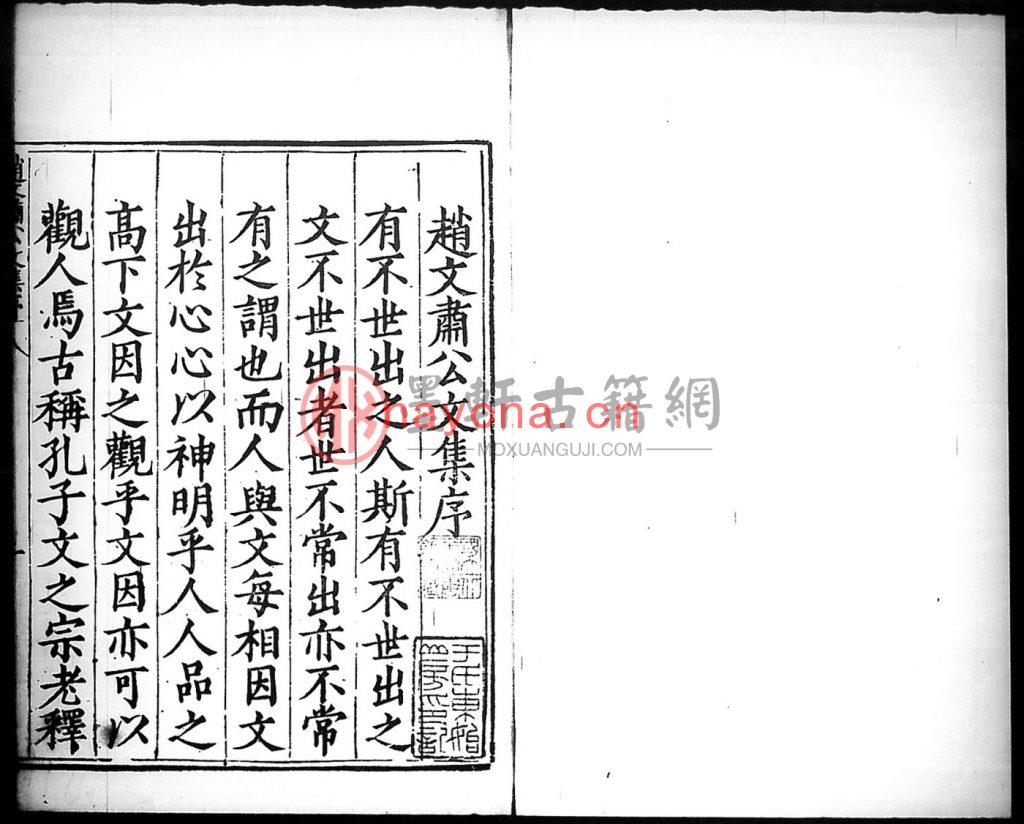 趙文肅公文集序
有不世出之人斯有不世出之
文不世出者世不常出亦不常
有之謂也而人與文每相因文
出於心心以神明乎人人品之
高下文因之觀乎文因亦可以
觀人焉古稱孔子文之宗老釋
墨軒古籍網
nayona.cn
MOXUANGUJI.COM